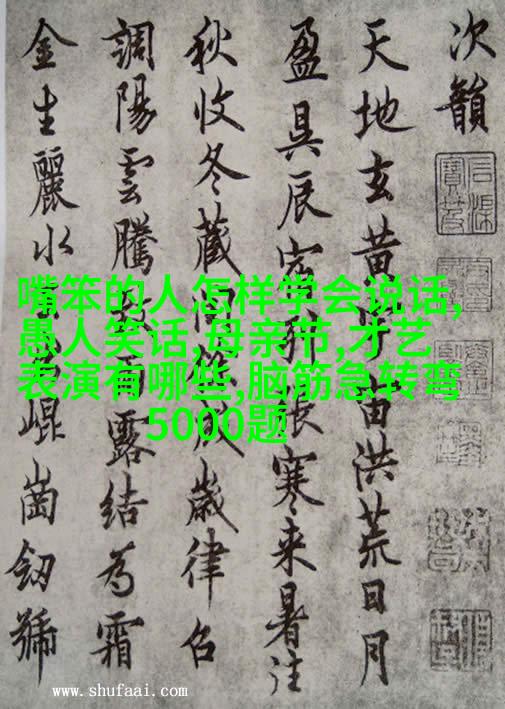 次韻
天地玄黄宇宙洪荒日月
盈昃辰宿列張寒来暑往
秋收冬藏閏餘成歲律召
調陽雲騰致雨露結為霜
金生麗水出崐崗劒號
嘴笨的人怎样学会说话,
愚人笑话,母亲节,才艺
表演有哪些,脑筋急转弯
5000题
www.shufaai.com